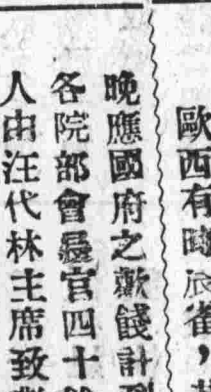 歐西有時
晚應國府之歡餞計到
各院部會長官四十餘
人由汪代林主席致